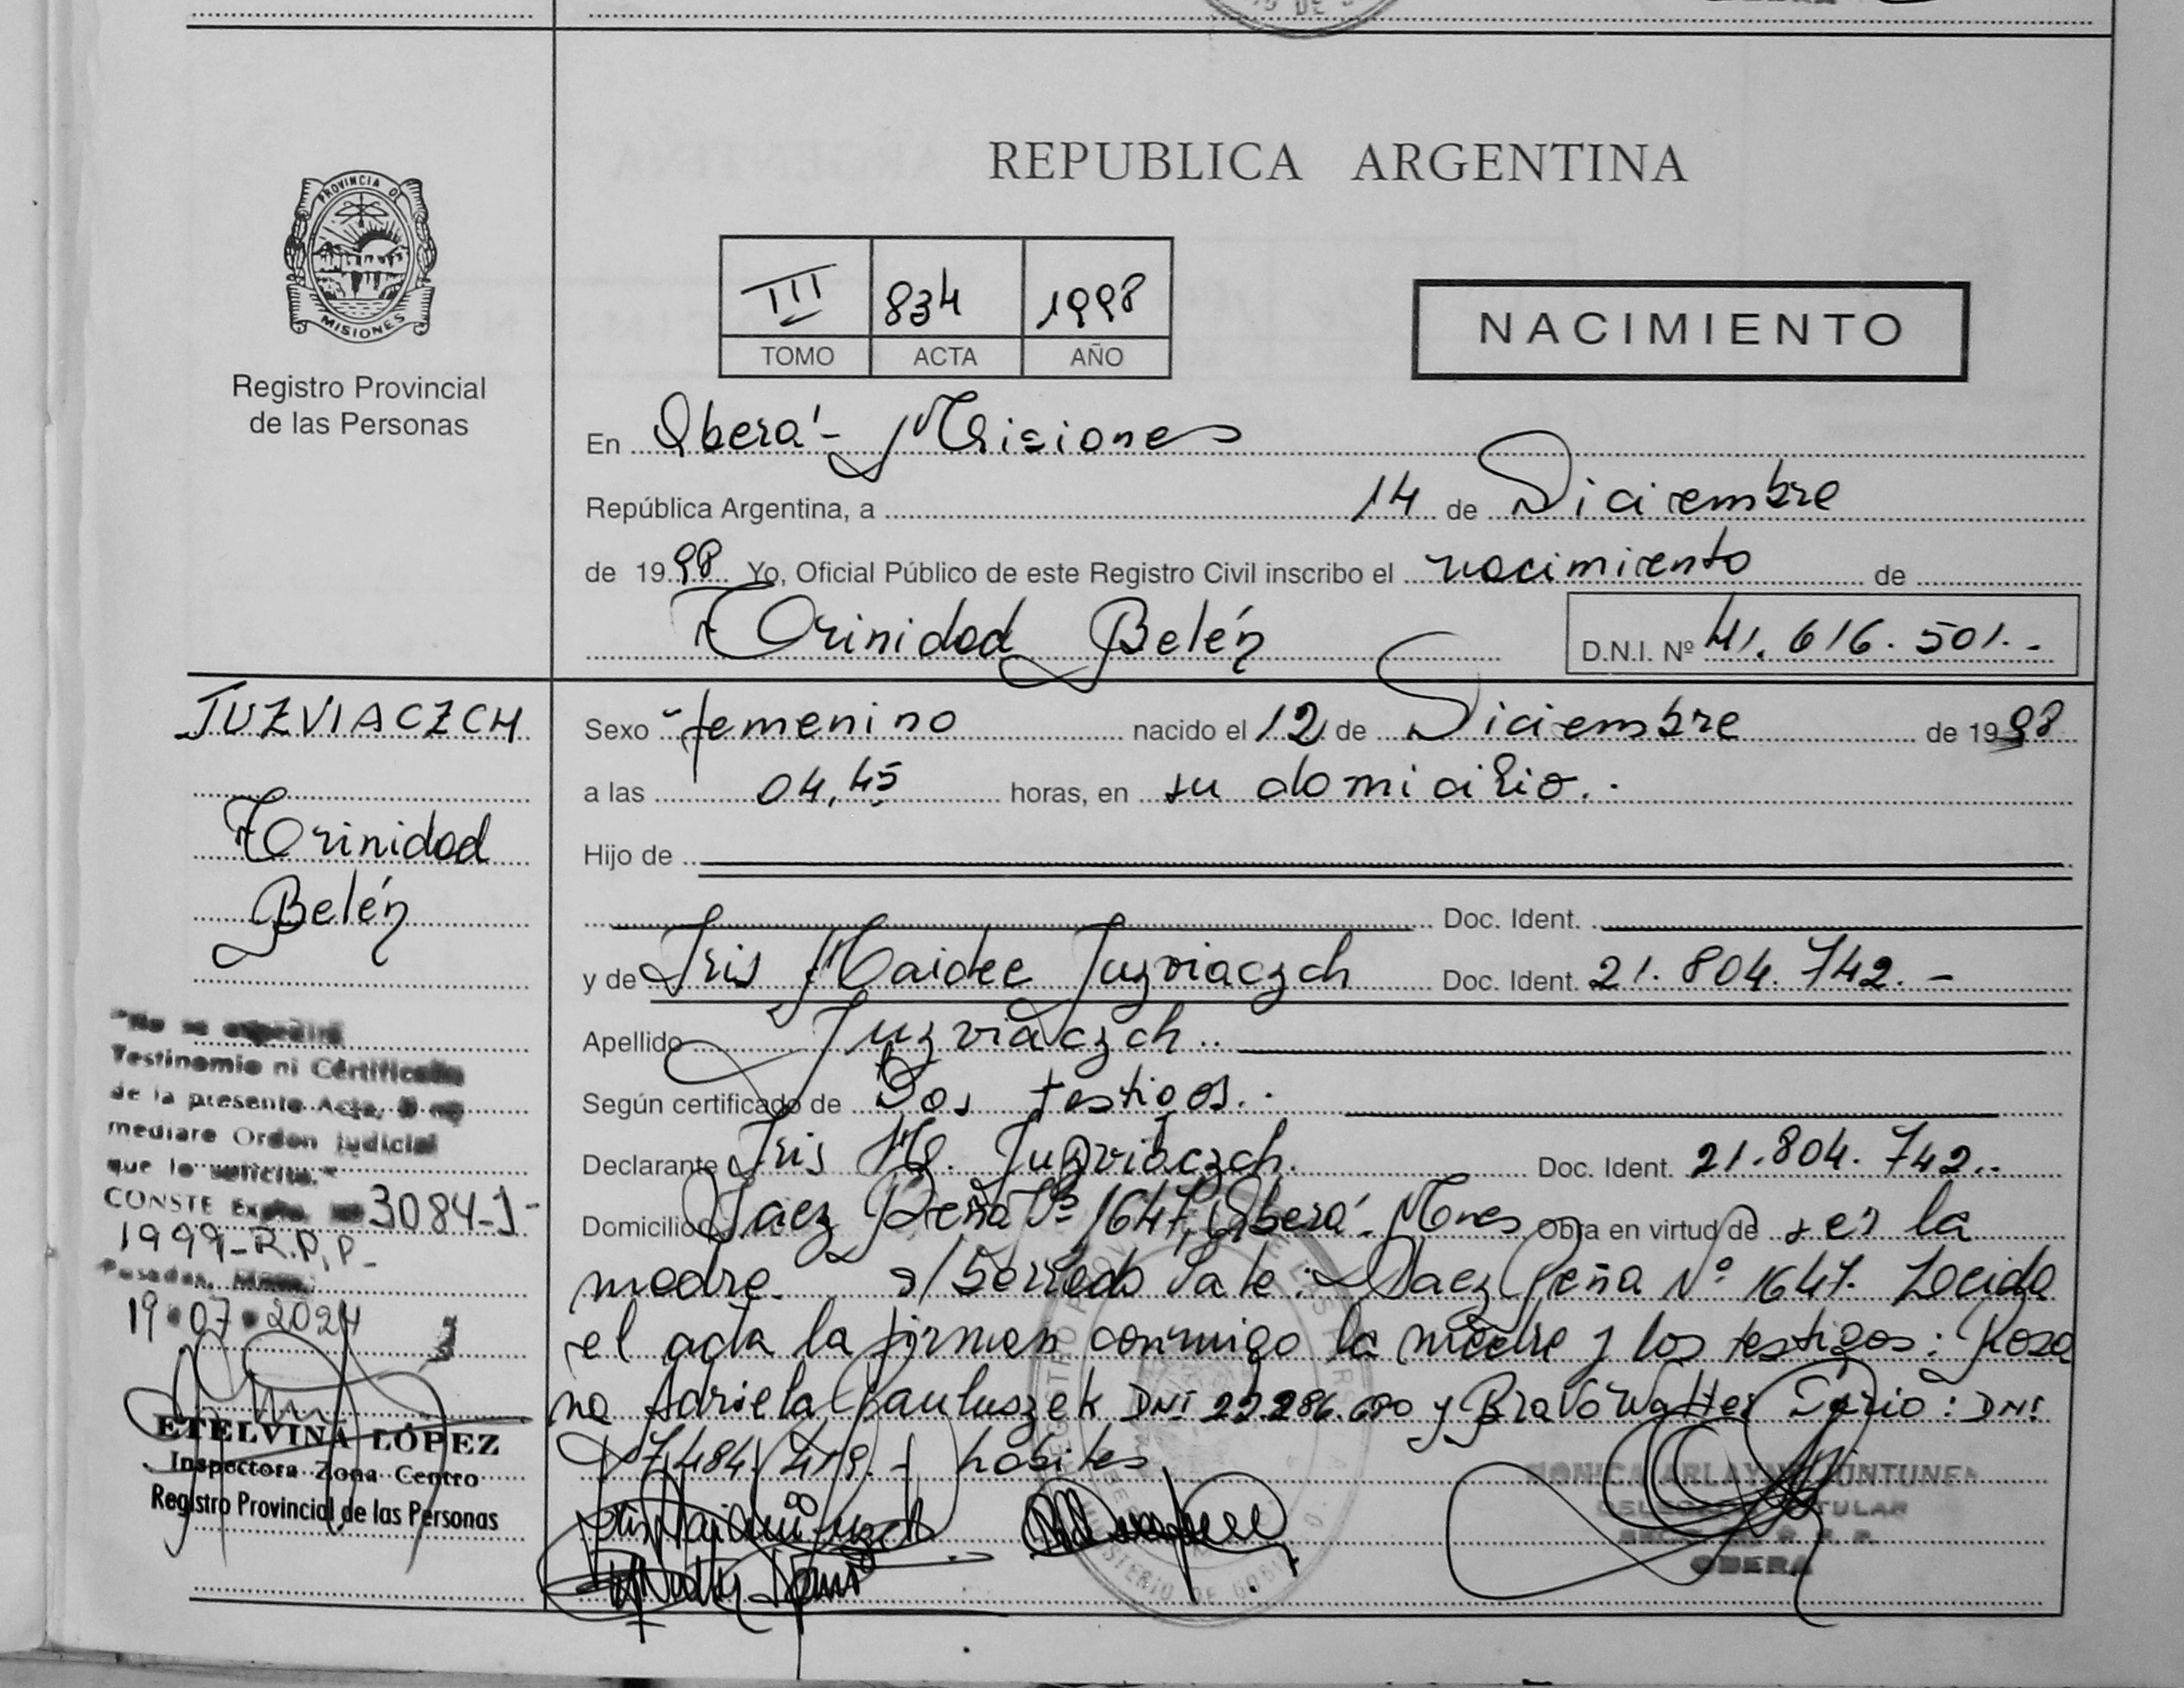 REPUBLICA ARGENTINA
PROVINCIA DE
MISIONES
Registro Provincial
de las Personas
III 834 1998
TOMO ACTA AÑO
NACIMIENTO
En Oberá - Misiones
República Argentina, a 14 de Diciembre
de 1998 Yo, Oficial Público de este Registro Civil inscribo el nacimiento de
Trinidad Belén D.N.I. Nº 41.616.501.-
JUZVIACZCH
Trinidad
Belén
Sexo femenino nacido el 12 de Diciembre de 1998
a las 04,45 horas, en su domicilio..
Hijo de
Doc. Ident.
y de Iris Haidee Juzviaczch Doc. Ident. 21.804.742.-
Apellido Juzviaczch..
Según certificado de Dos testigos..
Declarante Iris H. Juzviaczch. Doc. Ident. 21.804.742..
Domicilio Saez Peña Nº 1647, Oberá - Mnes Obra en virtud de ser la
madre. s/ Borrado Vale: Saez Peña Nº 1647. Leida
el acta la firman conmigo la madre y los testigos: Rosa
na Adriela Pauluszek DNI 22.286.680 y Bravo Walter Dario: DNI
17.484.419.- habiles
"No se expedirá
Testinomio ni Certificado
de la presente Acta, si no
mediare Orden judicial
que lo solicite."
CONSTE Expte. 3084-J-
1999-R.P.P-
Posadas, Mnes;
19.07.2024
ETELVINA LÓPEZ
Inspectora Zona Centro
Registro Provincial de las Personas
TITULAR
OBERA
MINISTERIO DE GOBIERNO